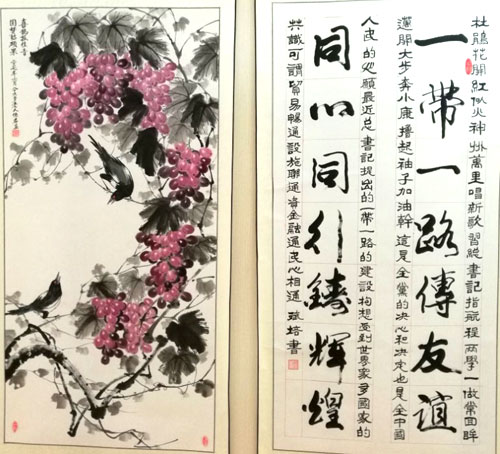 杜鵑花開紅似火神州萬里唱新歌習總書記指航程兩學一做常回眸
一帶一路傳友誼
邁開大步奔小康擼起袖子加油幹這是全黨的决心和决定也是全中國
人民的心願最近总書記提出的一帶一路的建設构想受到世界眾多國家的
同心同行鑄輝煌
共識可謂貿易暢通設施聯通資金融通民心相通 培書
喜鵲报佳音
碩果